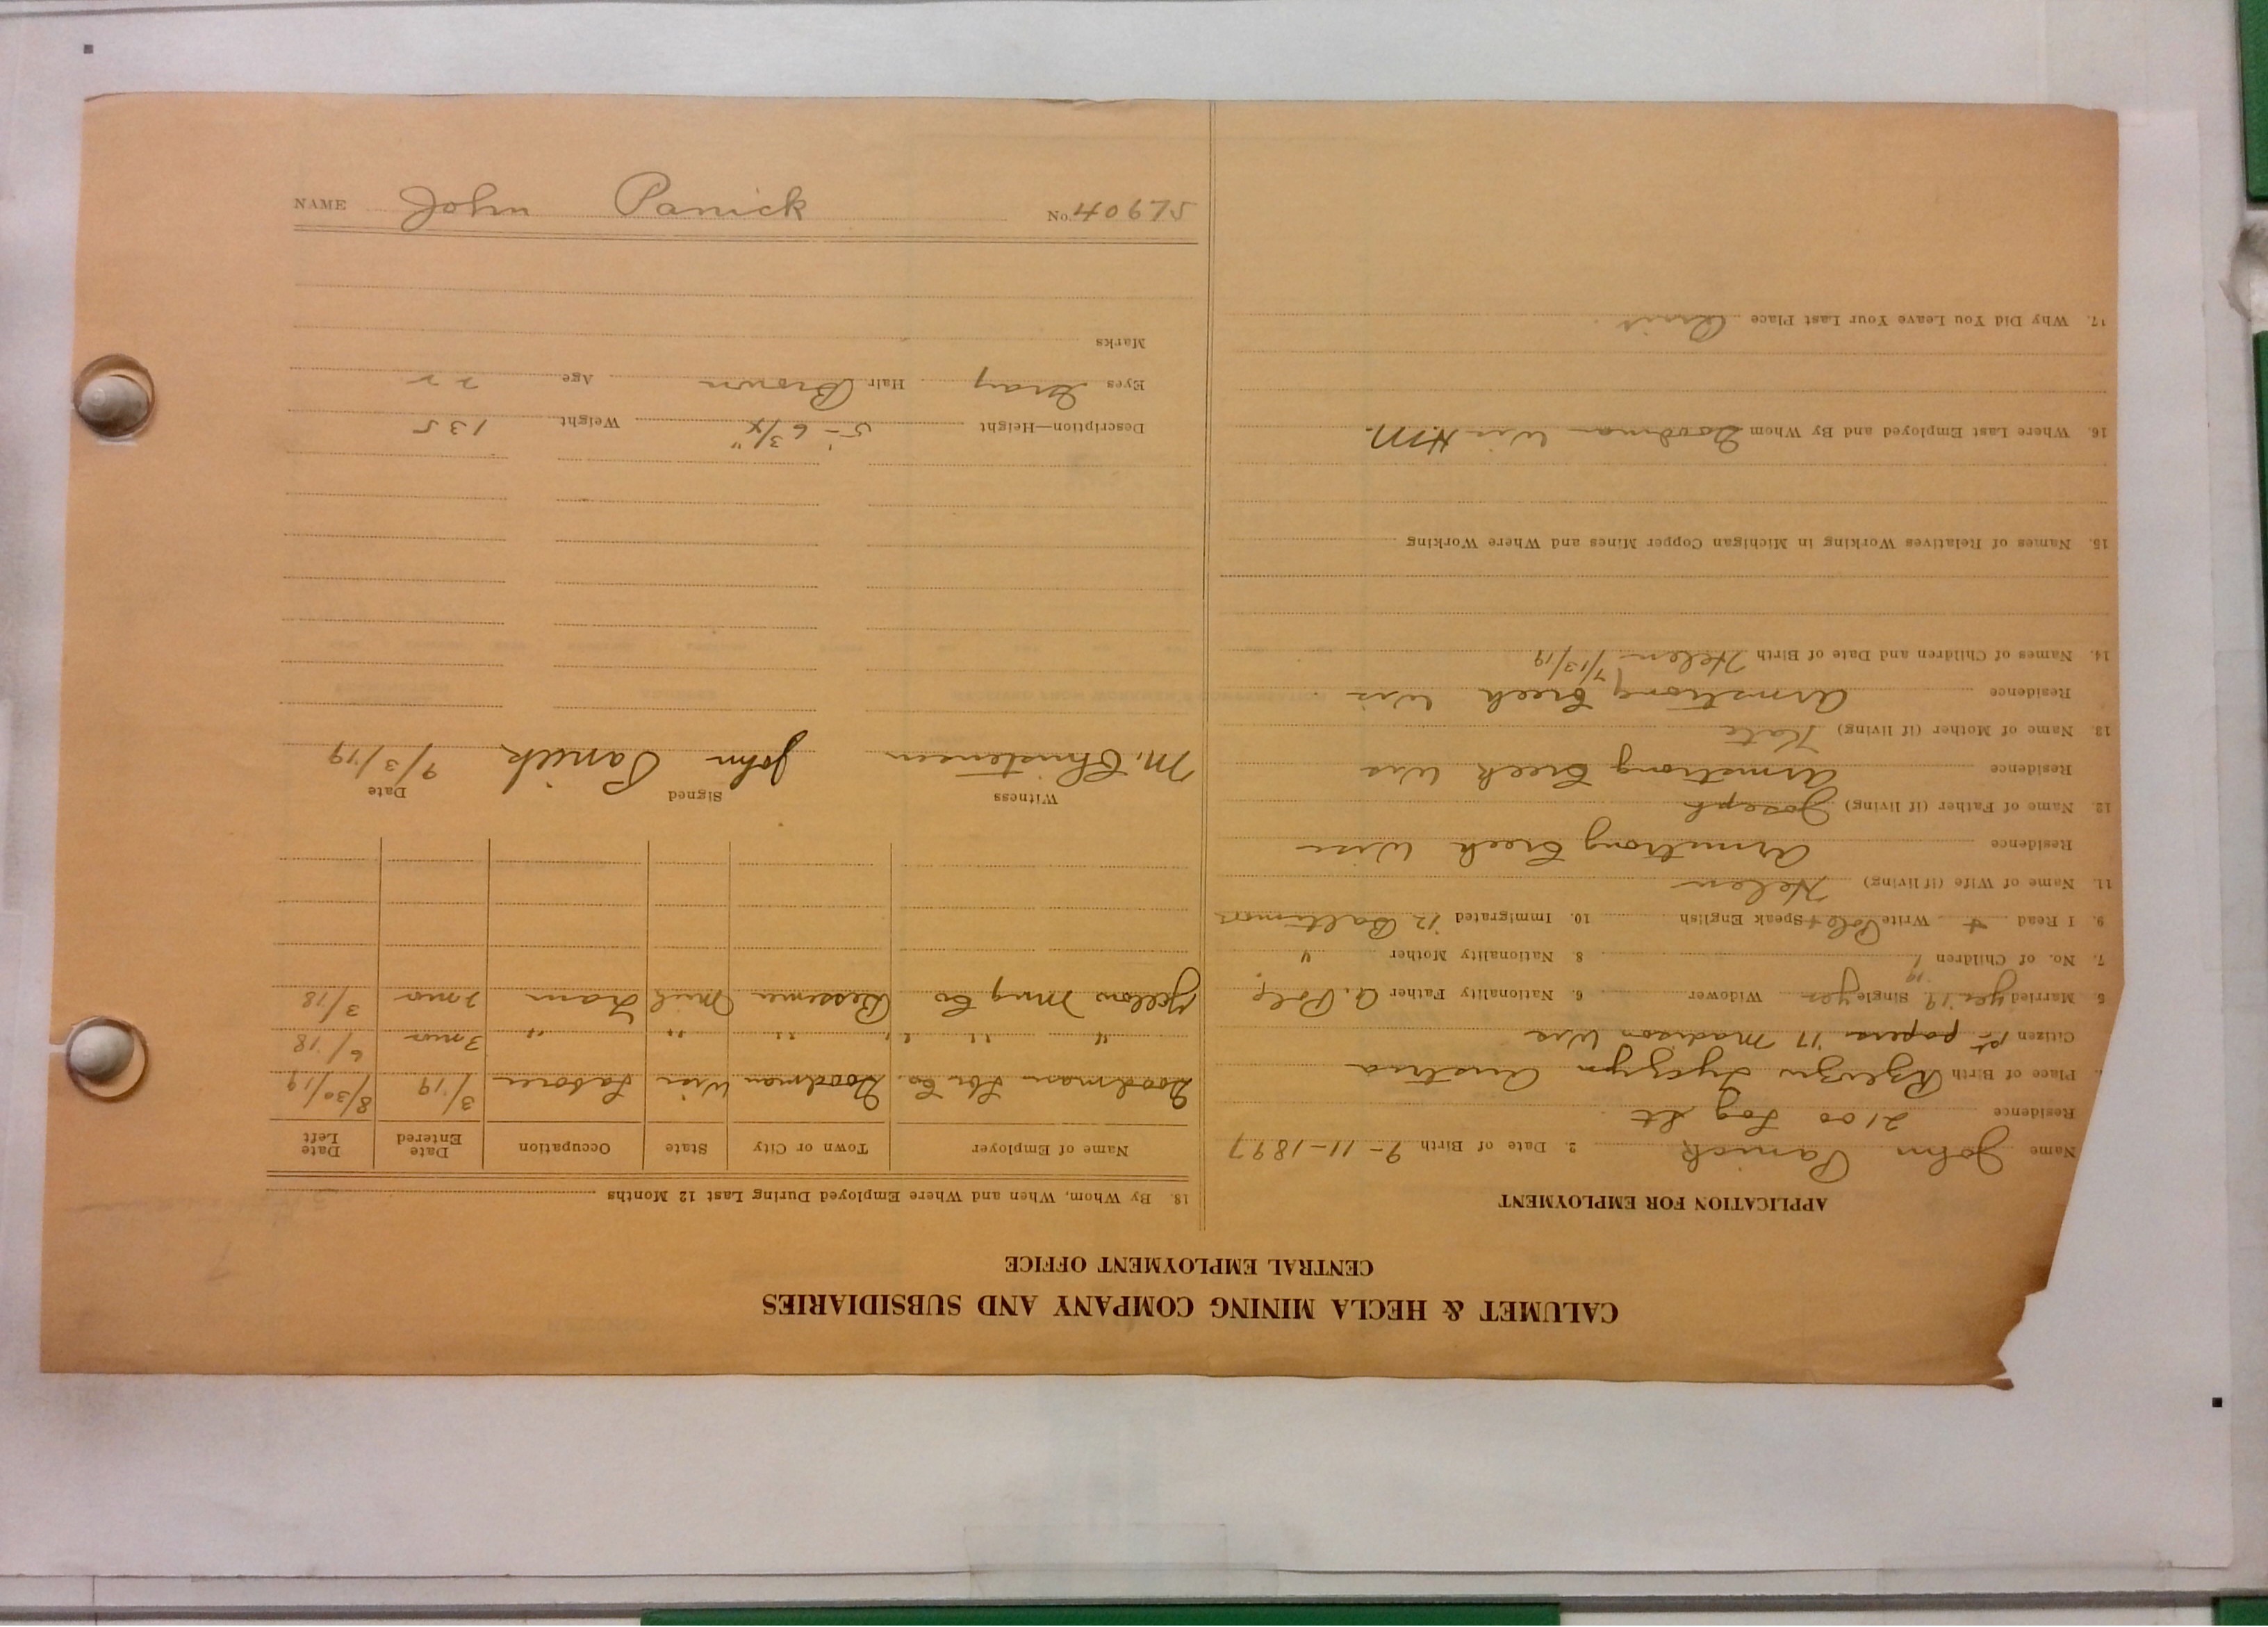 CALUMET & HECLA MINING COMPANY AND SUBSIDIARIES
CENTRAL EMPLOYMENT OFFICE
APPLICATION FOR EMPLOYMENT
Name John Panick 2. Date of Birth 9-11-1897
Residence 2100 Log St
Place of Birth Austria
Citizen 1st papers '17 Madison Wis
5 Married yes '19 Single yes Widower 6. Nationality Father A. Pole
7. No. of Children 1 8. Nationality Mother "
9. I Read + Write Pole + Speak English 10. Immigrated '12 Baltimore
11. Name of Wife (if living) Helen
Residence Armstrong Creek Wisc
12. Name of Father (if living) Joseph
Residence Armstrong Creek Wis
13. Name of Mother (if living) Kate
Residence Armstrong Creek Wis
14. Names of Children and Date of Birth Helen 7/13/19
15. Names of Relatives Working in Michigan Copper Mines and Where Working
16. Where Last Employed and By Whom Goodman Wis
17. Why Did You Leave Your Last Place
18. By Whom, When and Where Employed During Last 12 Months
Name of Employer Town or City State Occupation Date Entered Date Left
Goodman Lbr Co. Goodman Wis Laborer 3/'19 8/30/19
" " " " " " " 3 mos 6/18
Yellow Mng Co Bessemer Mich Tram 2 mos 3/18
Witness Signed Date
M. Christensen John Panick 9/3/19
Description—Height 5'-6 3/4" Weight 135
Eyes Gray Hair Brown Age 22
Marks
NAME John Panick No. 40675